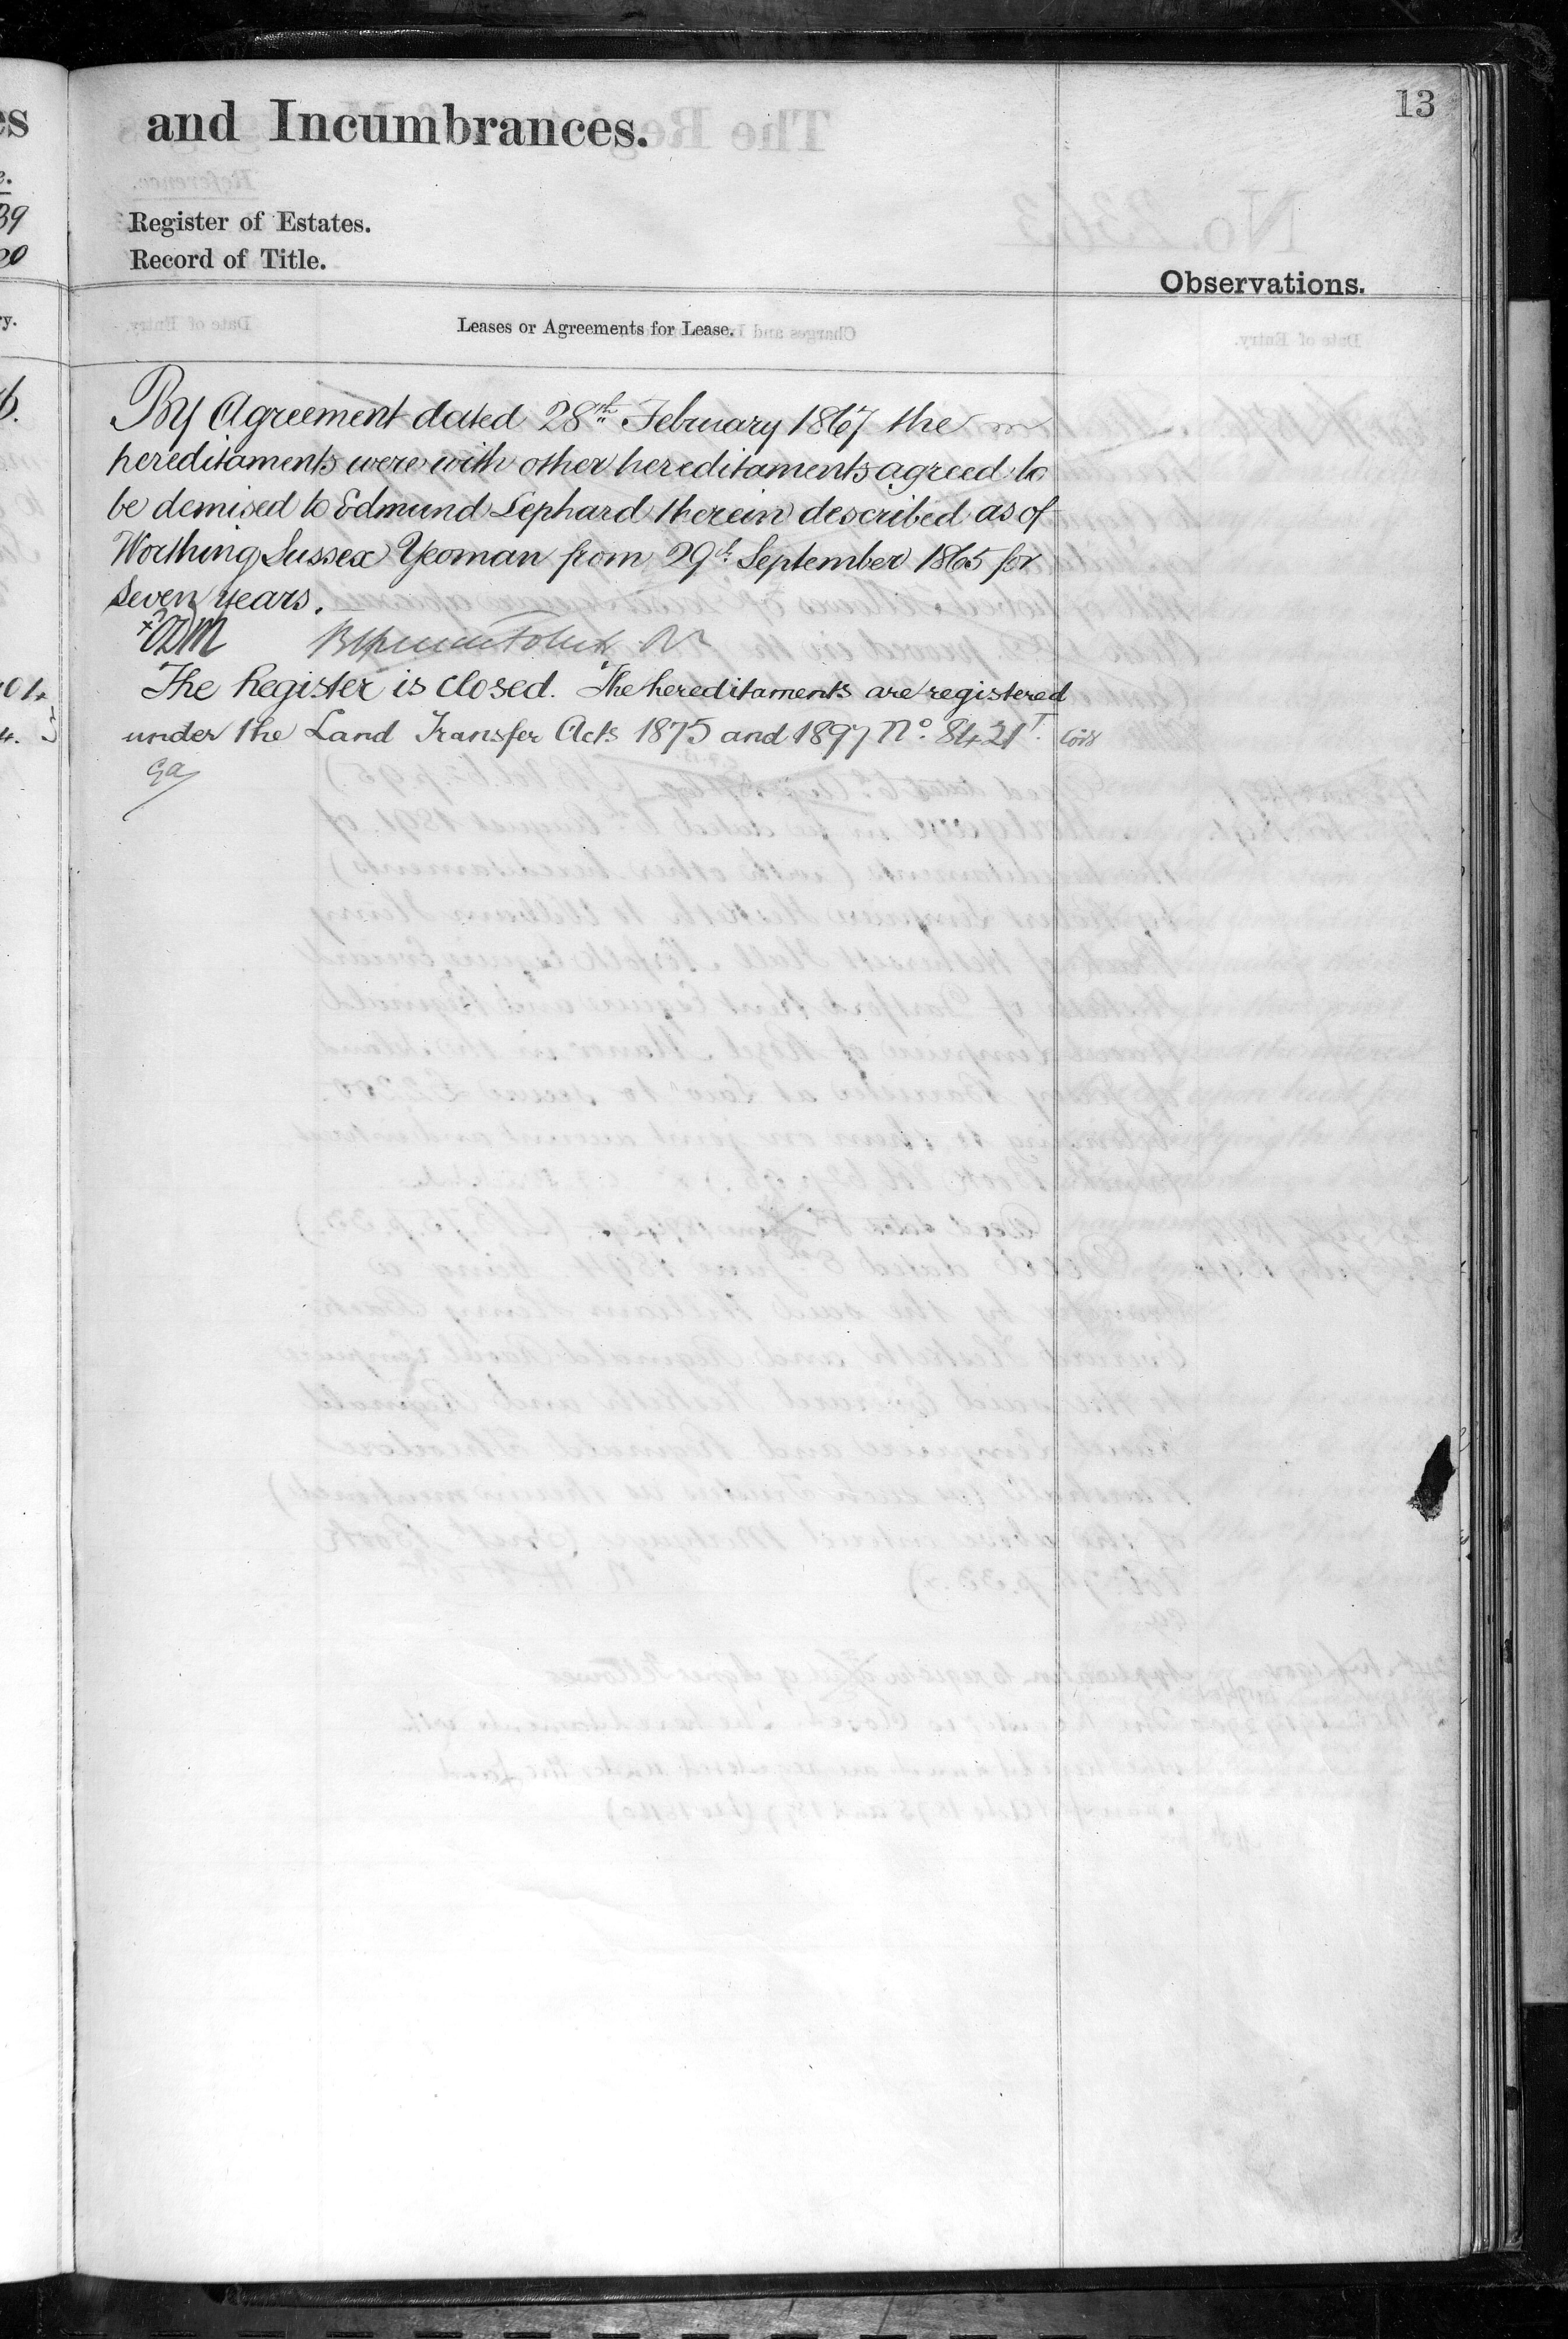 13
and Incumbrances.
Register of Estates.
Record of Title.
Observations.
Leases or Agreements for Lease.
By Agreement dated 28th February 1867 the
hereditaments were with other hereditaments agreed to
be demised to Edmund Lephard therein described as of
Worthing Sussex Yeoman from 29th September 1865 for
seven years.
The Register is closed. The hereditaments are registered
under the Land Transfer Acts 1875 and 1897 No. 8421